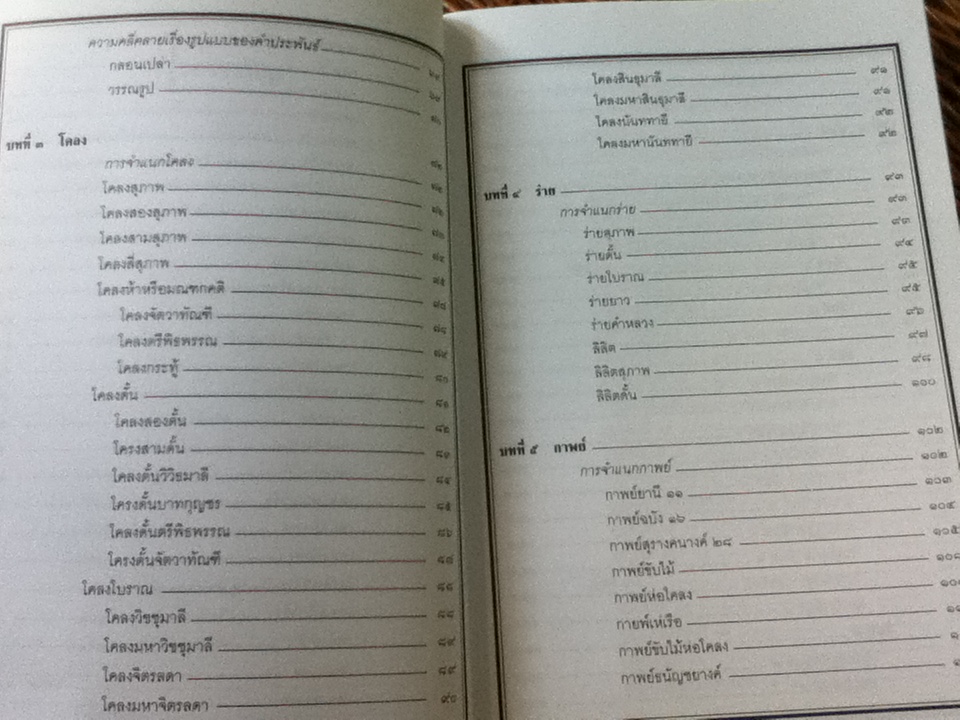 ความคลี่คลายเรื่องรูปแบบของคำประพันธ์
กลอนเปล่า
วรรณรูป
บทที่ ๓ โคลง
การจำแนกโคลง
โคลงสุภาพ
โคลงสองสุภาพ
โคลงสามสุภาพ
โคลงสี่สุภาพ
โคลงห้าหรือมณฑกคติ
โคลงจัตวาทัณฑี
โคลงตรีพิธพรรณ
โคลงกระทู้
โคลงดั้น
โคลงสองดั้น
โครงสามดั้น
โคลงดั้นวิวิธมาลี
โครงดั้นบาทกุญชร
โคลงดั้นตรีพิธพรรณ
โครงดั้นจัตวาทัณฑี
โคลงโบราณ
โคลงวิชชุมาลี
โคลงมหาวิชชุมาลี ๘๙
โคลงจิตรลดา ๘๙
โคลงมหาจิตรลดา ๙๐
โคลงสินธุมาลี ๙๑
โคลงมหาสินธุมาลี ๙๑
โคลงนันททายี ๙๒
โคลงมหานันททายี ๙๒
บทที่ ๔ ร่าย ๙๓
การจำแนกร่าย ๙๓
ร่ายสุภาพ ๙๓
ร่ายดั้น ๙๔
ร่ายโบราณ ๙๕
ร่ายยาว ๙๕
ร่ายคำหลวง ๙๖
ลิลิต ๙๗
ลิลิตสุภาพ ๙๘
ลิลิตดั้น ๑๐๐
บทที่ ๕ กาพย์ ๑๐๒
การจำแนกกาพย์ ๑๐๒
กาพย์ยานี ๑๑ ๑๐๓
กาพย์ฉบัง ๑๖ ๑๐๔
กาพย์สุรางคนางค์ ๒๘ ๑๐๕
กาพย์ขับไม้
กาพย์ห่อโคลง
กายพ์เห่เรือ
กาพย์ขับไม้ห่อโคลง
กาพย์ธนัญชยางค์